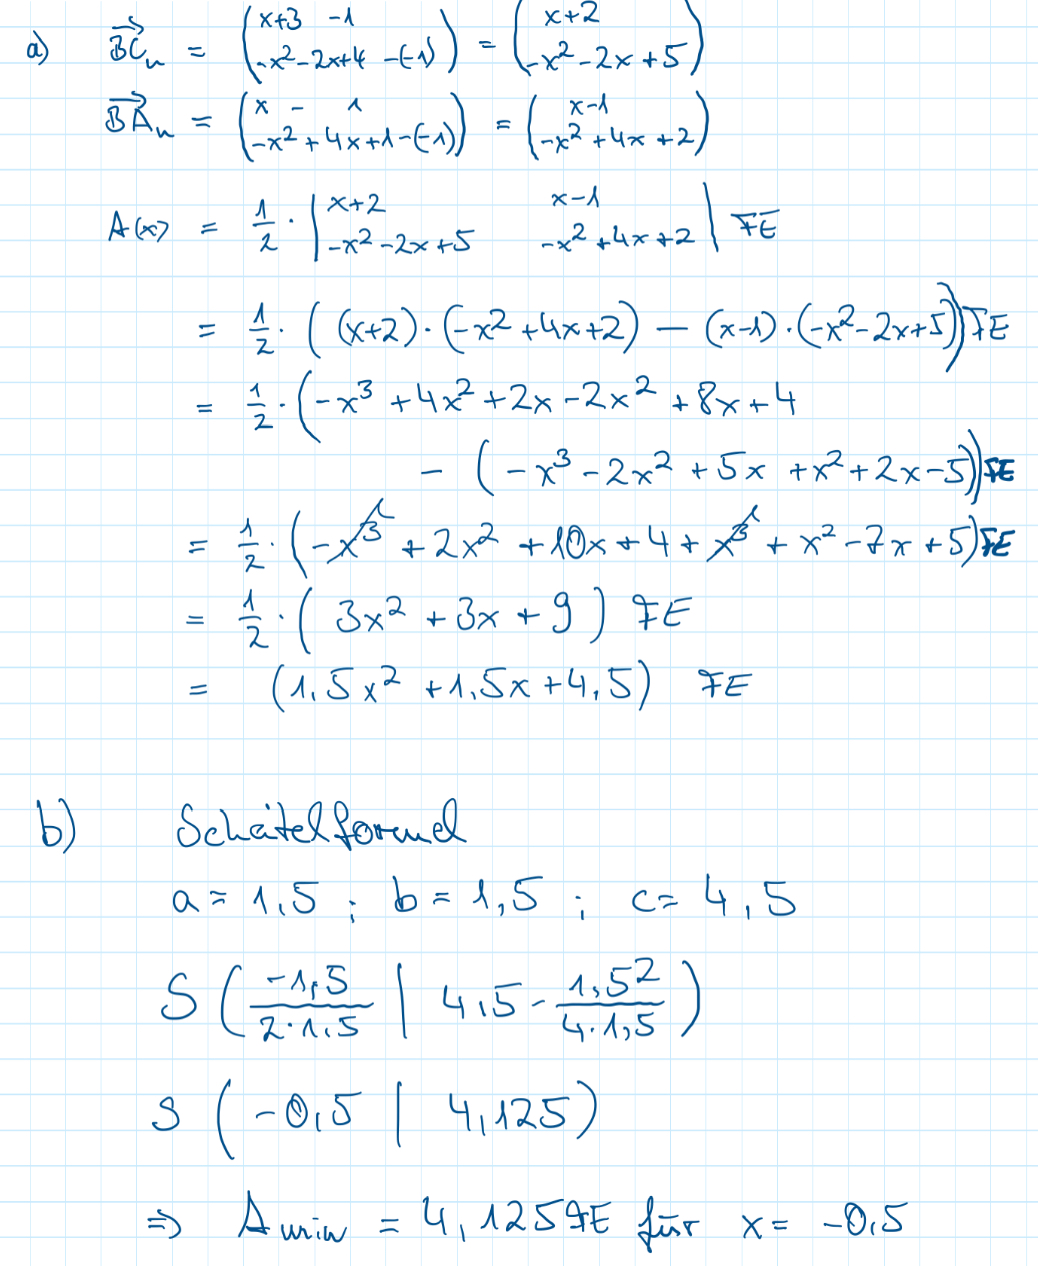 a) $\overrightarrow{BC_n} = \begin{pmatrix} x+3 - 1 \\ -x^2-2x+4 -(-1) \end{pmatrix} = \begin{pmatrix} x+2 \\ -x^2-2x+5 \end{pmatrix}$
$\overrightarrow{BA_n} = \begin{pmatrix} x - 1 \\ -x^2+4x+1-(-1) \end{pmatrix} = \begin{pmatrix} x-1 \\ -x^2+4x+2 \end{pmatrix}$
$A(x) = \frac{1}{2} \cdot \begin{vmatrix} x+2 & x-1 \\ -x^2-2x+5 & -x^2+4x+2 \end{vmatrix}$ FE
$= \frac{1}{2} \cdot ( (x+2) \cdot (-x^2+4x+2) - (x-1) \cdot (-x^2-2x+5))$ FE
$= \frac{1}{2} \cdot (-x^3+4x^2+2x-2x^2+8x+4$
$- (-x^3-2x^2+5x+x^2+2x-5))$ FE
$= \frac{1}{2} \cdot (-x^3+2x^2+10x+4+x^3+x^2-7x+5)$ FE
$= \frac{1}{2} \cdot ( 3x^2+3x+9 )$ FE
$= (1,5x^2+1,5x+4,5)$ FE
b) Scheitelformel
a = 1,5 ; b = 1,5 ; c = 4,5
$S \left( \frac{-1,5}{2 \cdot 1,5} \middle| 4,5 - \frac{1,5^2}{4 \cdot 1,5} \right)$
S ( -0,5 | 4,125)
⇒ A min = 4,125 FE für x = -0,5